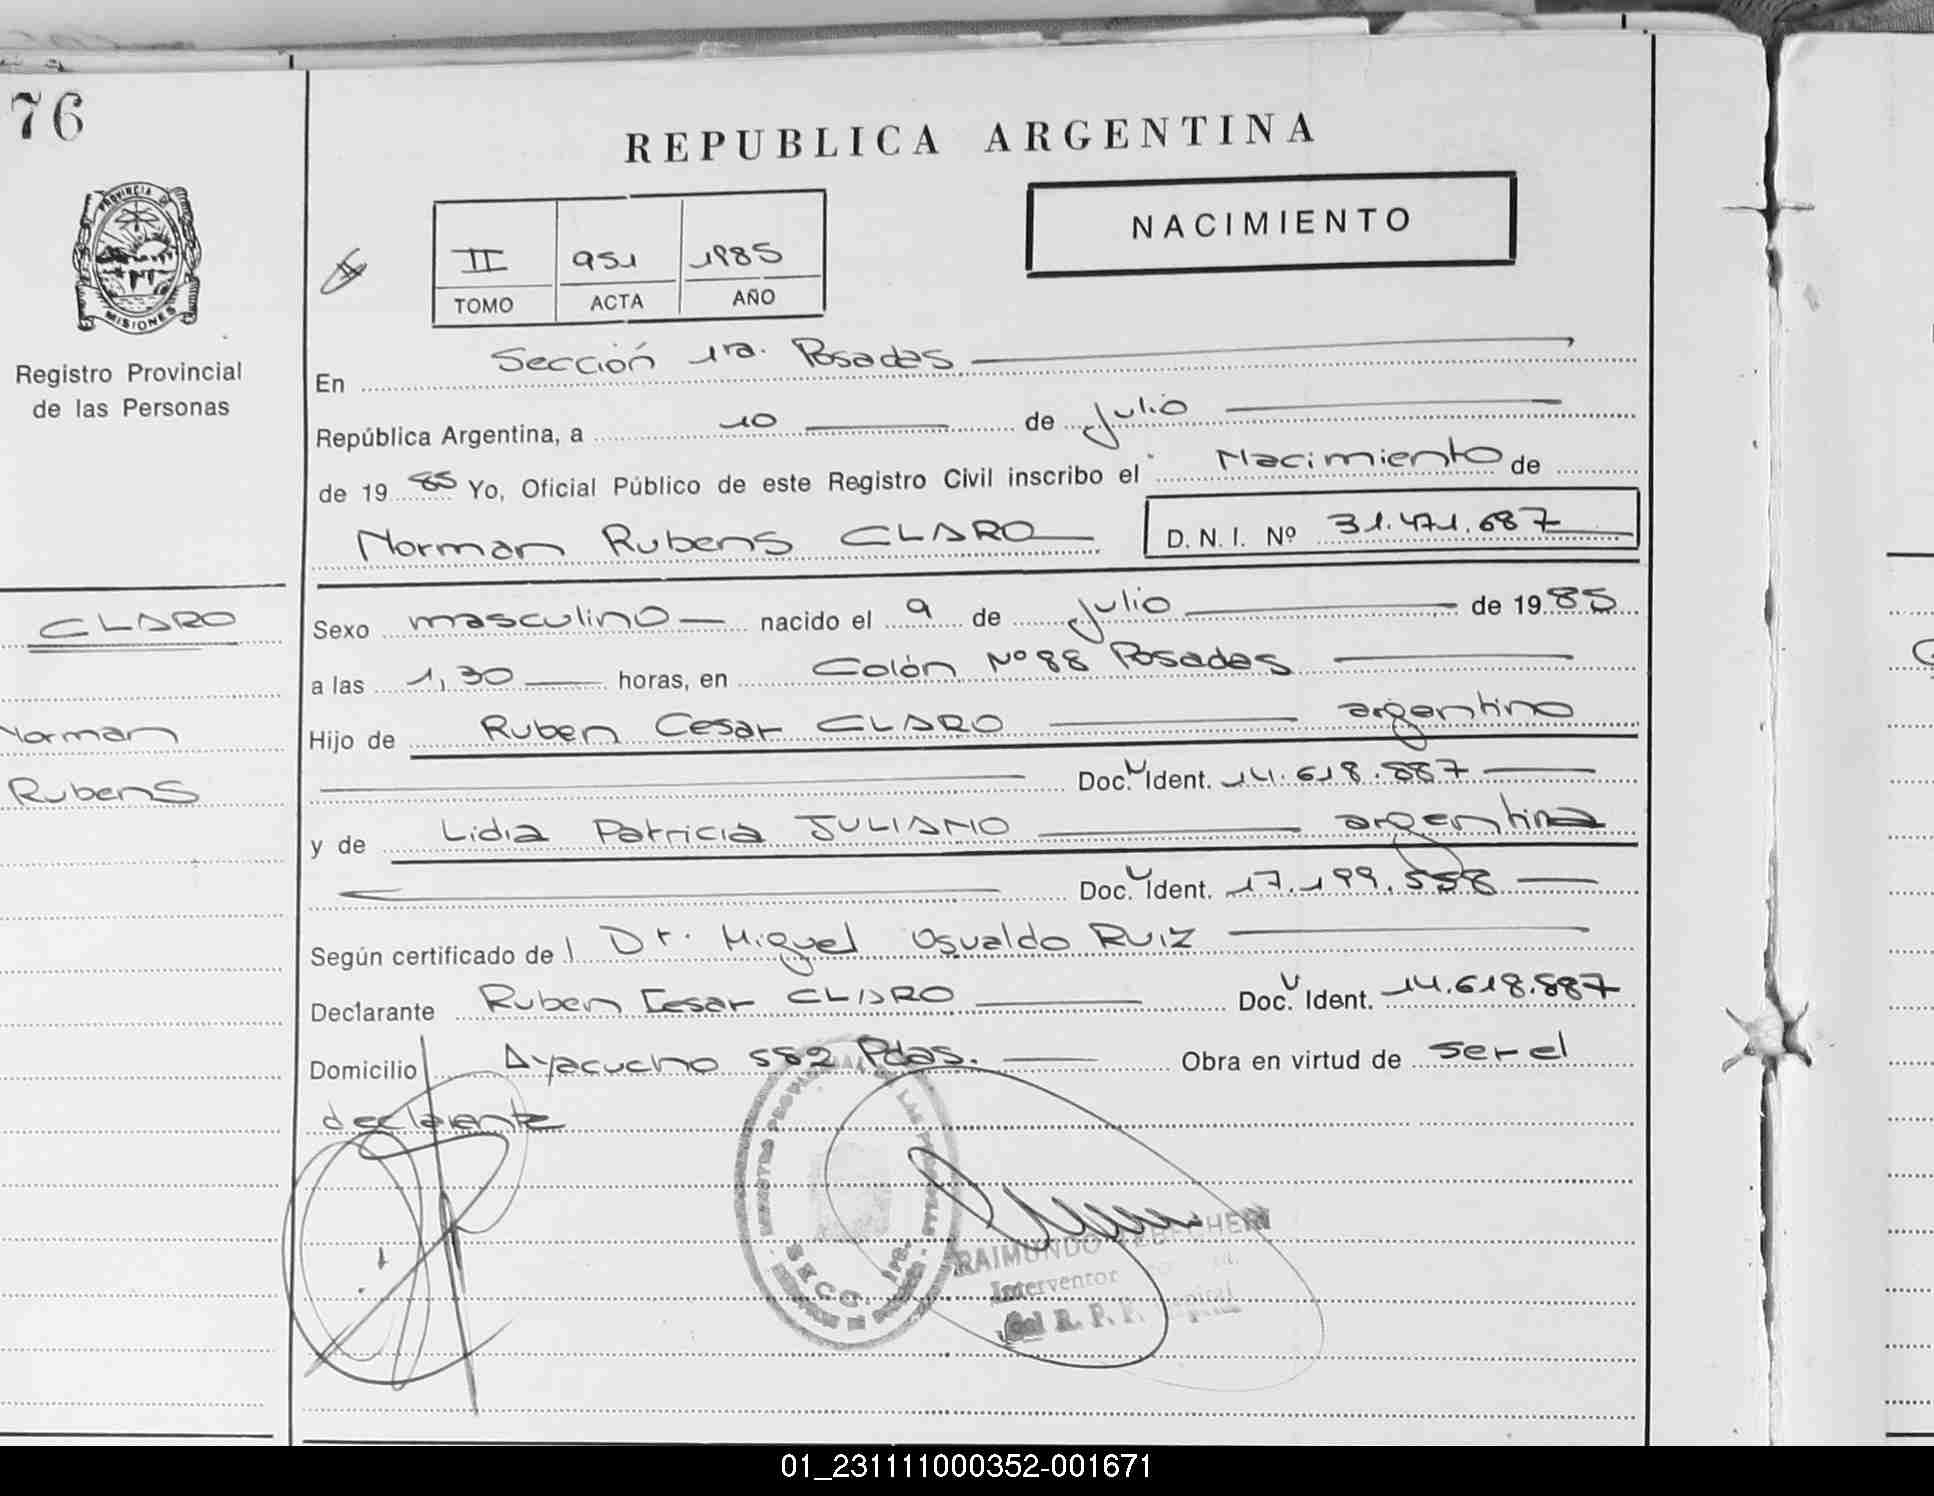 76
PROVINCIA DE
MISIONES
Registro Provincial
de las Personas
CLARO
Norman
Rubens
REPUBLICA ARGENTINA
NACIMIENTO
II 951 1985
TOMO ACTA AÑO
En Sección 1ra. Posadas
República Argentina, a 10 de Julio
de 1985 Yo, Oficial Público de este Registro Civil inscribo el Nacimiento de
Norman Rubens CLARO D. N. I. Nº 31.471.687
Sexo masculino nacido el 9 de Julio de 1985
a las 1,30 horas, en Colón Nº 88 Posadas
Hijo de Ruben Cesar CLARO argentino
Doc. Ident. 14.618.887
y de Lidia Patricia JULIANO argentina
Doc. Ident. 17.199.558
Según certificado de Dr. Miguel Osvaldo RUIZ
Declarante Ruben Cesar CLARO Doc. Ident. 14.618.887
Domicilio Ayacucho 582 Pdas. Obra en virtud de ser el
declarante
SECC. 1ra.
RAIMUNDO
Interventor
del R. P. P. Capital
01_231111000352-001671